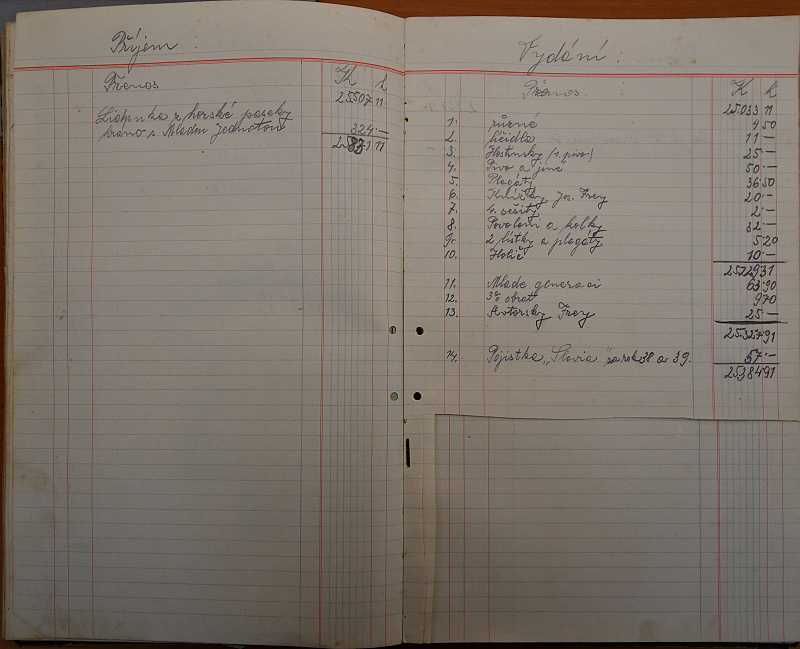 Příjem.
Přenos
K h
25507 11
Lidunka z horské paseky
hráno s Mladou Jednotou
324 —
25831 11
Vydání:
Přenos.
K h
25.033 11
1. různé 4 50
2. líčidla 11 —
3. Hostinský (1. pivo) 25 —
4. Pivo a jiné 50 —
5. Plagáty 36 50
6. Jos. Frey 20 —
7. 4 sešity 2 —
8. Povolení a kolky 32 —
9. 2 lístky a plagáty 5 20
10. Holič 10 —
25.229 31
11. Mlade generaci 63 90
12. 3% obrat 9 70
13. Frey 25 —
25.327 91
14. Pojistka „Slavia" za rok 38 a 39. 57 —
25.384 91